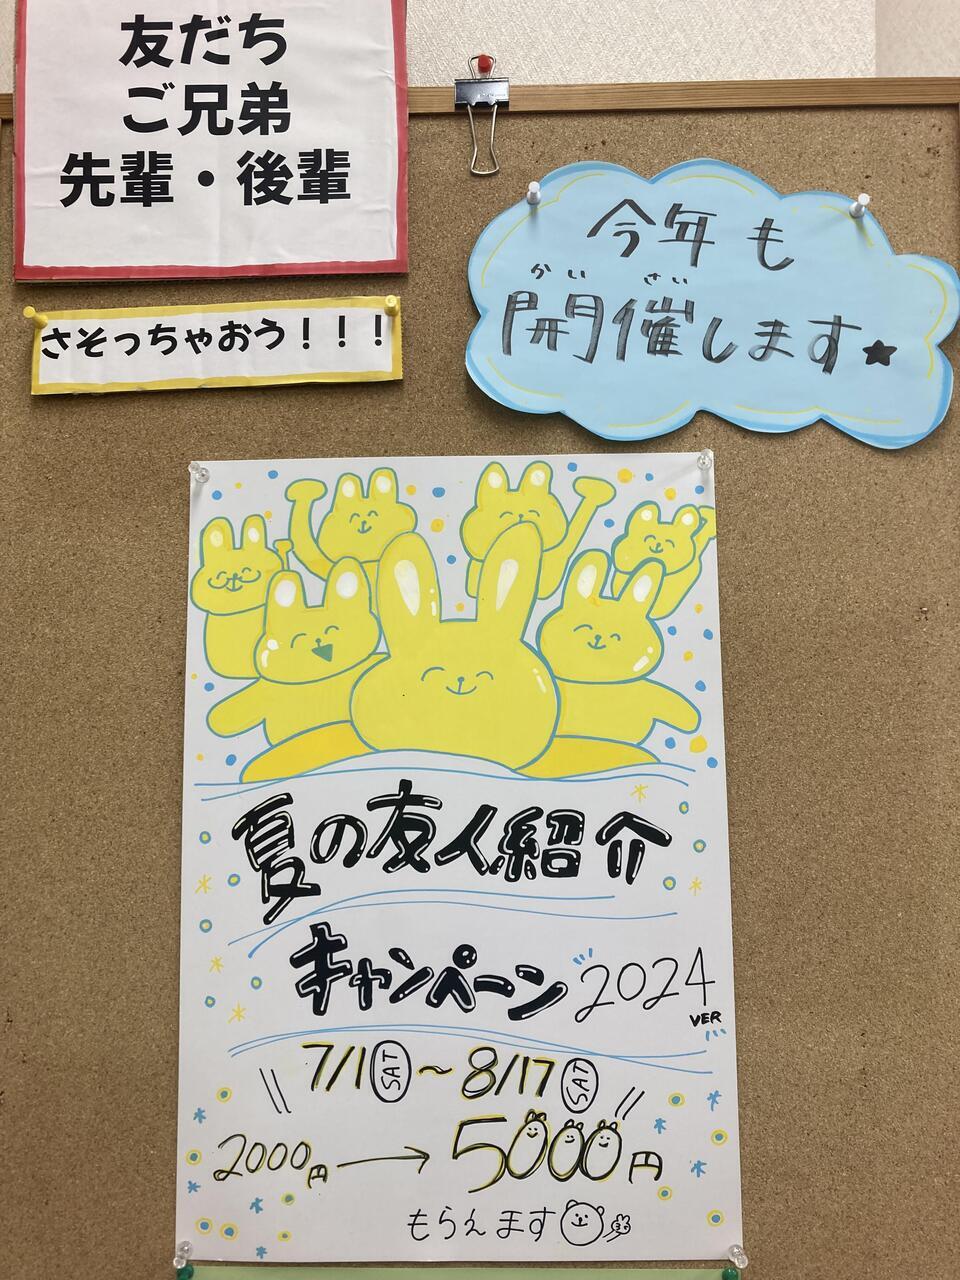 友だち
ご兄弟
先輩・後輩
さそっちゃおう！！！
今年も
かい さい
開催します★
夏の友人紹介
キャンペーン 2024
VER
7/1 SAT ～ 8/17 SAT
2000円 → 5000円
もらえます